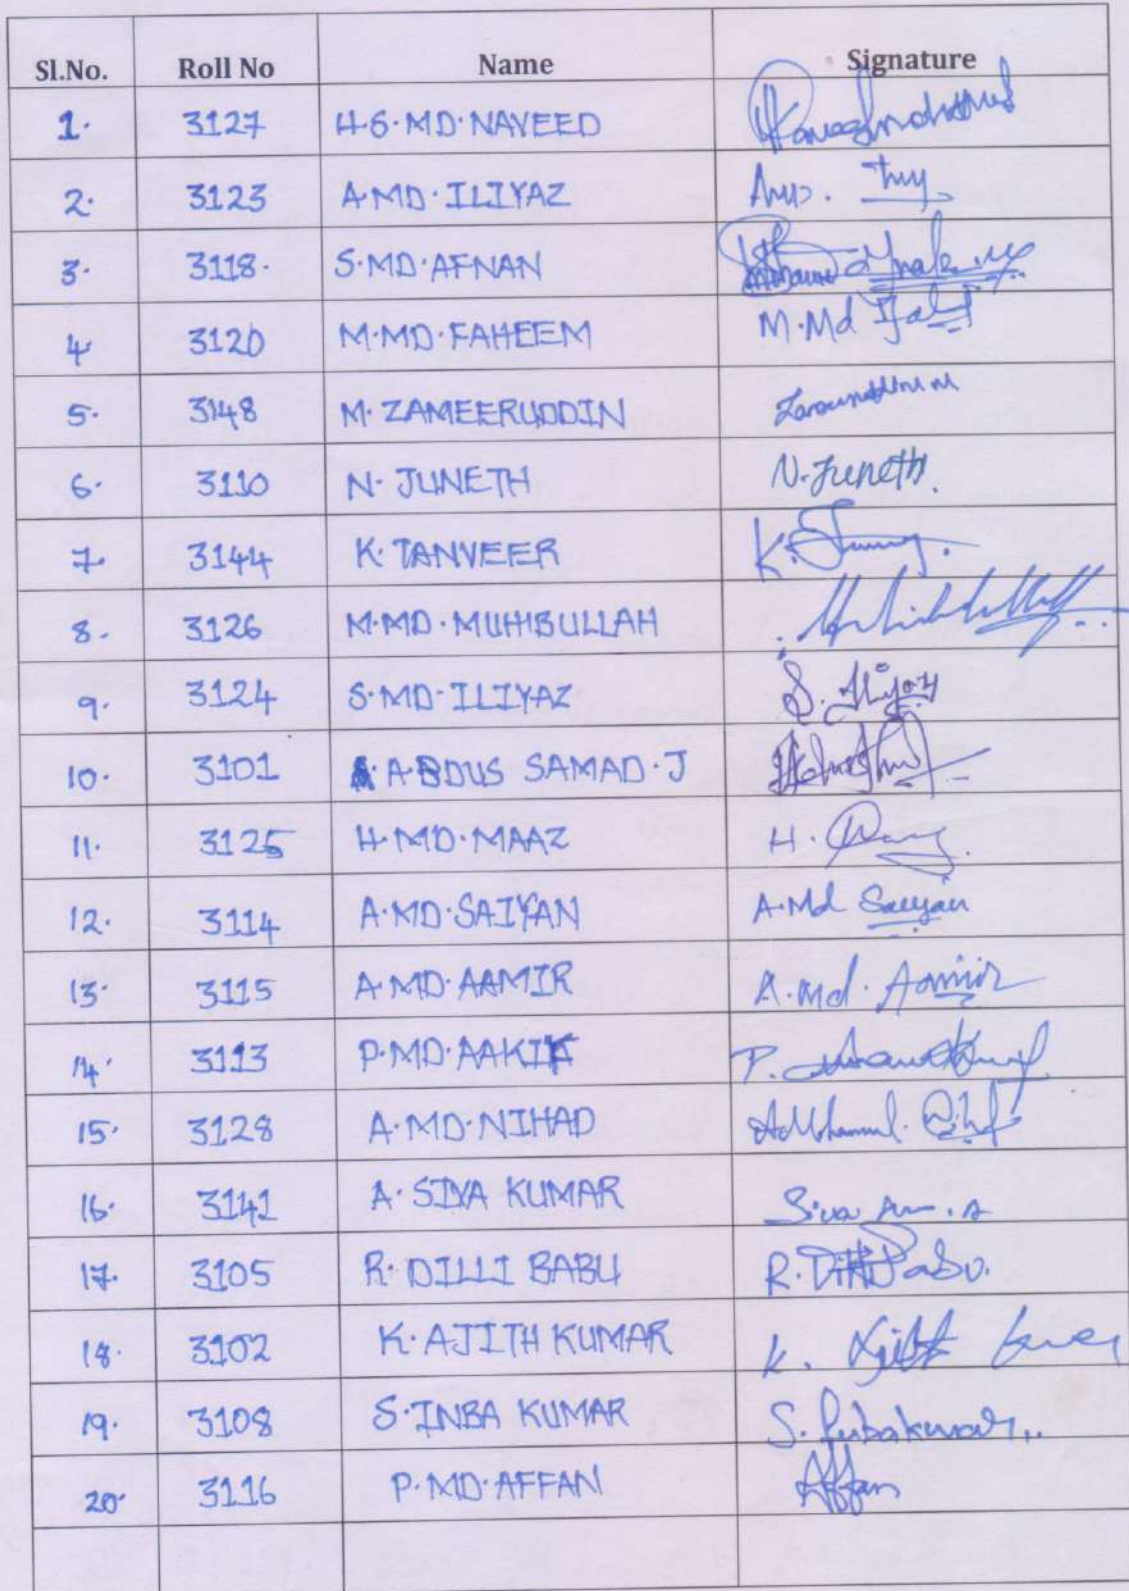 Sl.No. Roll No Name Signature
1. 3127 H.S.MD.NAVEED
2. 3123 A.MD.ILIYAZ
3. 3118. S.MD.AFNAN
4. 3120 M.MD.FAHEEM M.Md
5. 3148 M. ZAMEERUDDIN
6. 3110 N. JUNETH N. Juneth.
7. 3144 K. TANVEER K.
8. 3126 M.MD.MUHIBULLAH
9. 3124 S.MD.ILIYAZ S. Iliyaz
10. 3101 A.ABDUS SAMAD.J
11. 3125 H.MD.MAAZ H.
12. 3114 A.MD.SAIYAN A.Md Saiyan
13. 3115 A.MD.AAMIR A.Md. Aamir
14. 3113 P.MD.AAKIK P.
15. 3128 A.MD.NIHAD
16. 3141 A. SIVA KUMAR Siva
17. 3105 R. DILLI BABU R. Dilli Babu.
18. 3102 K. AJITH KUMAR K. Ajith
19. 3108 S.INBA KUMAR S. Inbakumar
20. 3116 P.MD.AFFAN Affan